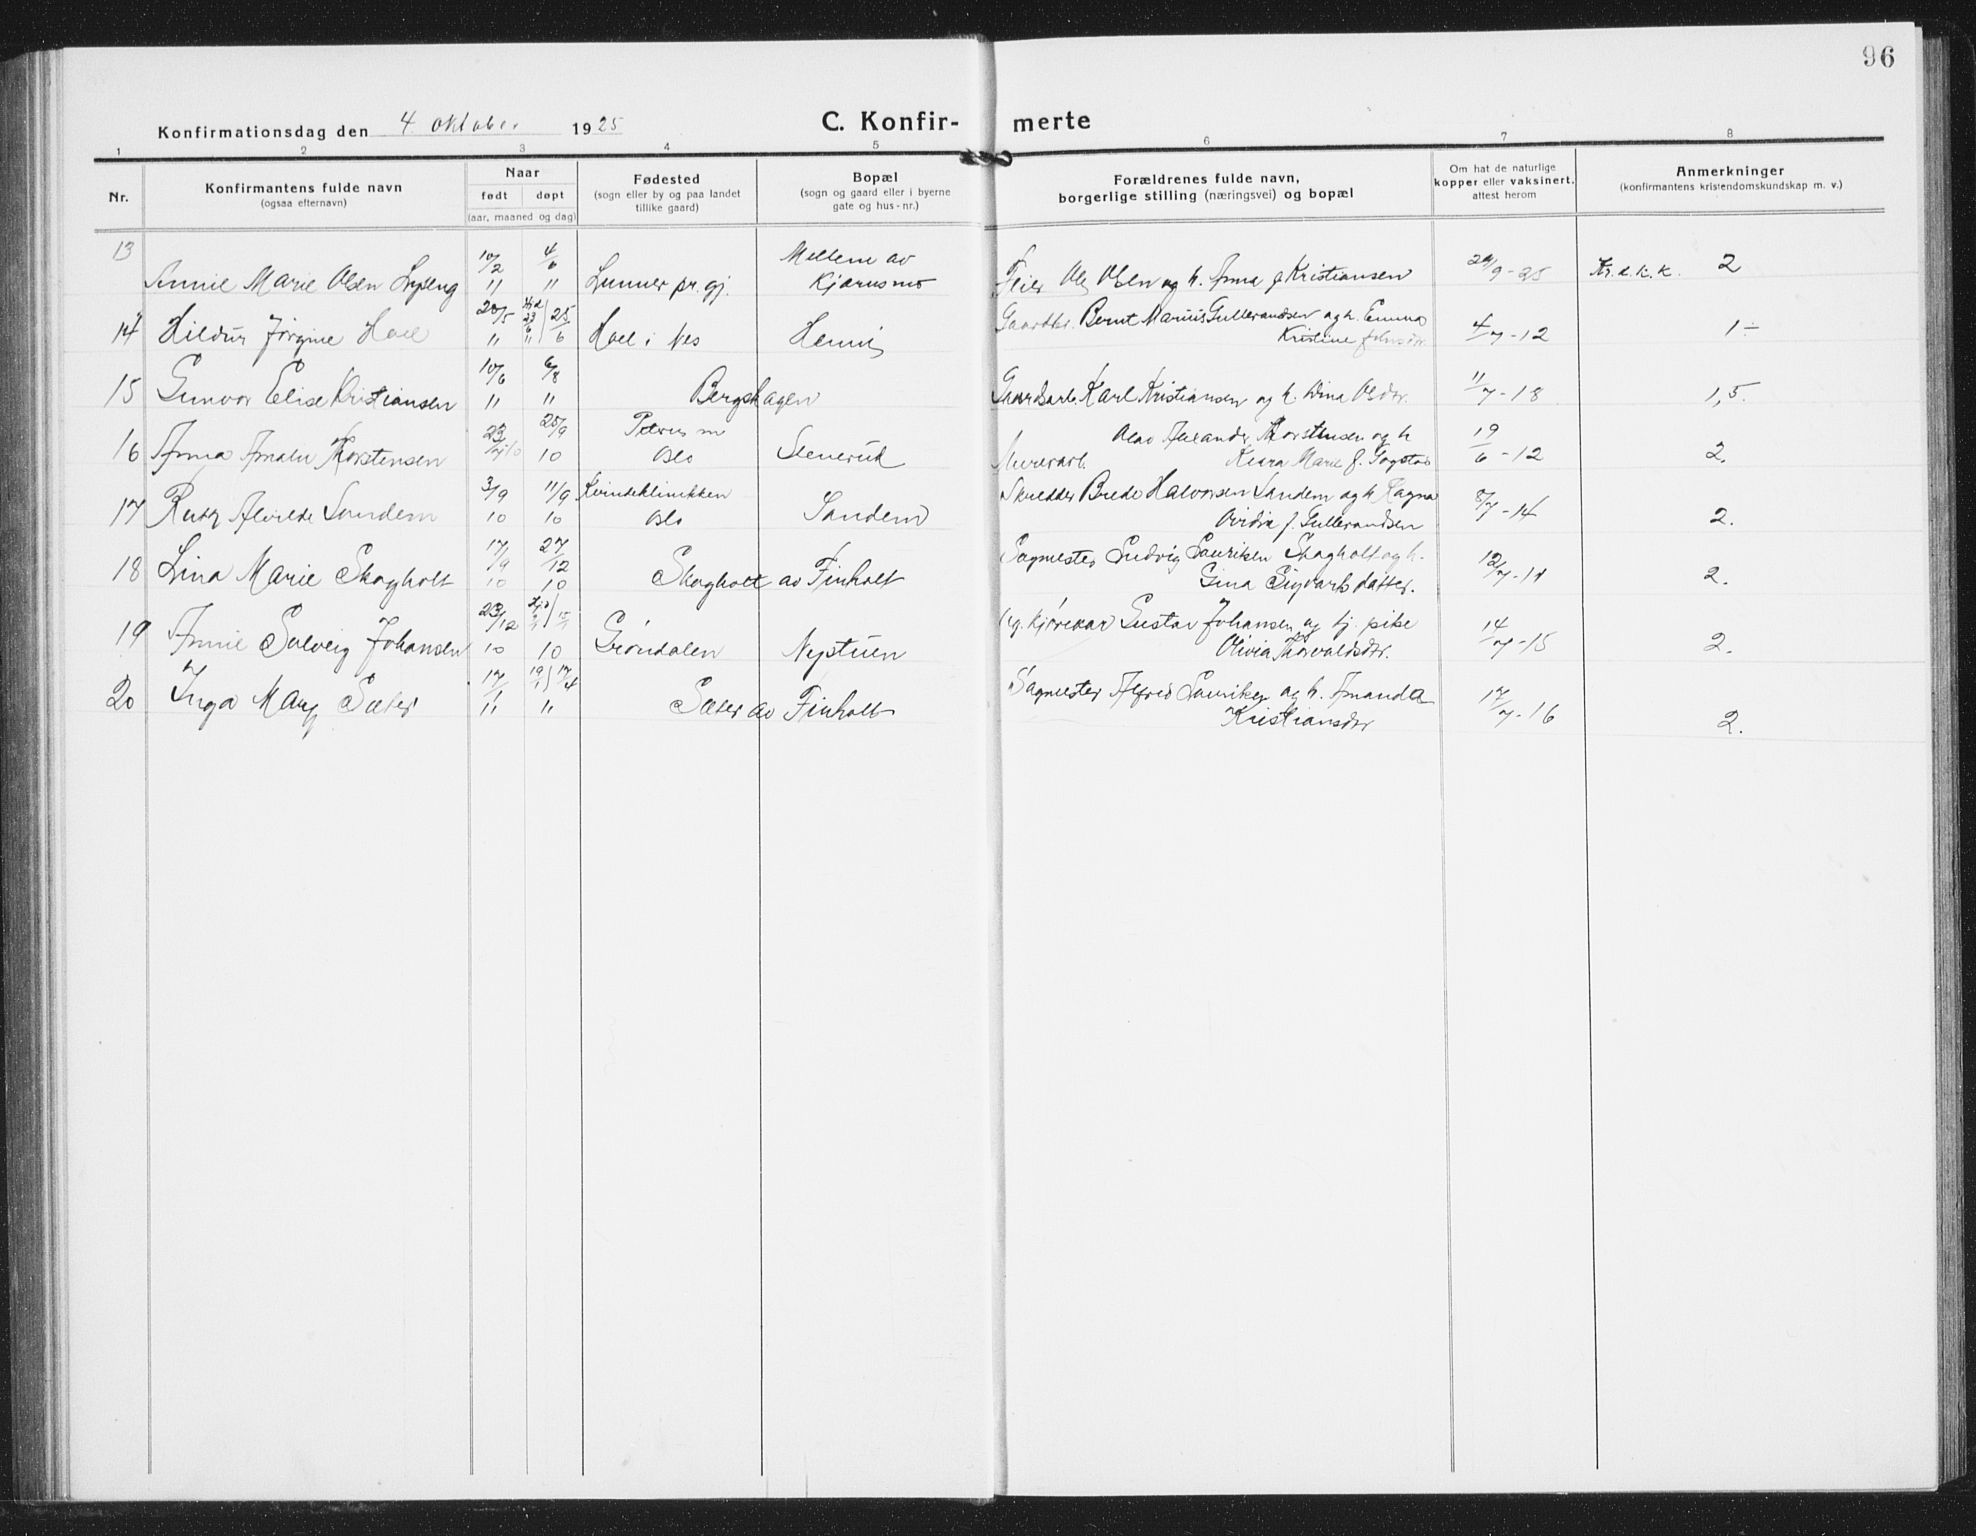 96
Konfirmationsdag den 4 oktober 1925
C. Konfir- merte
1 2 3 4 5 6 7 8
Nr.
Konfirmantens fulde navn
(ogsaa efternavn)
Naar
født døpt
(aar, maaned og dag)
Fødested
(sogn eller by og paa landet
tillike gaard)
Bopæl
(sogn og gaard eller i byerne
gate og hus-nr.)
Forældrenes fulde navn,
borgerlige stilling (næringsvei) og bopæl
Om hat de naturlige
kopper eller vaksinert,
attest herom
Anmerkninger
(konfirmantens kristendomskundskap m. v.)
13 10/2 4/6 Mellem av
Annie Marie Olsen Lyseng 11 11 Lunner pr. gj. Kjærnsmo Feier Ole Olsen og h. Anna f Kristiansen 29/9-25 Kr. d. k. k. 2
20/5 25 Gaardbr. Bernt Marius Gullerandsen og h. Emma
14 Hildur Jørgine Hoel 11 6 Hoel i Nes Henni Kristine Johnsdr. 4/7-12 1÷
10/6 6/8
15 Gunvor Elise Kristiansen 11 11 Bergshagen Gaardsarb. Karl Kristiansen og h. Dina Olsdr. 11/7-18 1,5.
23 25/9 Petrus m Olav Alexander Thorstensen og h
16 Anna Amalie Thorstensen 10 10 Oslo Stenerud Murerarb. Klara Marie f. Fogstad 19/6-12 2.
3/9 11/9 Kvindeklinikken Skredder Brede Halvorsen Sandem og h Ragna
17 Ruth Alvilde Sandem 10 10 Oslo Sandem Ovidia f. Gullerandsen 8/7-14 2.
17/9 27/12 Sagmester Ludvig Lauriksen Skogholt og h.
18 Lina Marie Skogholt 10 10 Skogholt av Finholt Gina Sigvartsdatter. 12/7-11 2.
23/12 Ug. kjørekar Gustav Johansen og tj. pike
19 Annie Solveig Johansen 10 10 Grøndalen Nystuen Olivia Thorvaldsdr. 14/7-15 2.
17/1 19/1 17/4 Sagmester Alfred Lauriksen og h. Amanda
20 Inga Mary Sæter 11 11 Sæter av Finholt Kristiansdr 17/7-16 2.